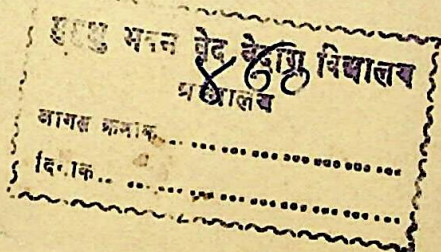 मुमुक्षु भवन वेद वेदाङ्ग विद्यालय
ग्रन्थालय
आगत क्रमांक......................
दिनांक.........................